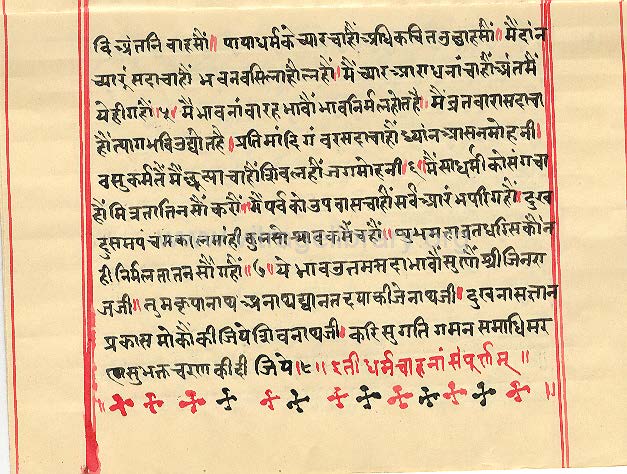 दि अंतनि चाहसौं॥ पायाधर्मके च्यारचाहौं अधिकचितनुछाहसौं॥ मैं दांन
च्यारूं सदाचाहौं भवनवसिलाहौलहौं॥ मैं च्यार आराधनांचाहौं अंतमैं
येहीगहौं॥५॥ मैं भावनांवारहभावौं भावनिर्मलहोतहै॥ मैं व्रतवारासदाचा
हौं त्यागभावउद्योतहै॥ प्रतिमांदिगंवरसदाचाहौं ध्यांनआसनमोहनी॥
वसुकर्मतैं मैं छुट्याचाहौं शिवलहौं जगमोहनी॥६॥ मैं साधर्मीकोसंगचा
हौं मित्रतातिनसौंकरौं॥ मैं पर्वकोउपवासचाहौं सर्वआरंभपरिगहौं॥ दुख
दुसमपंचमकालमाही कुलसोश्रावकमैंचहौं॥ महाव्रतधरिसकौंन
ही निर्मलतातनमौंगहौं॥७॥ ये भावउत्तमसदाभावौं सुणौं श्रीजिनरा
जजी॥ तुमकृपानाथअनाथद्यानतदयाकीजेनाथजी॥ दुखनासज्ञान
प्रकासमोकौंकीजिये शिवनाथजी॥ करिसुगतिगमनसमाधिमर
णसुभक्तचरणकीदीजिये॥८॥ इती धर्मचाहनां संपूर्णम्॥